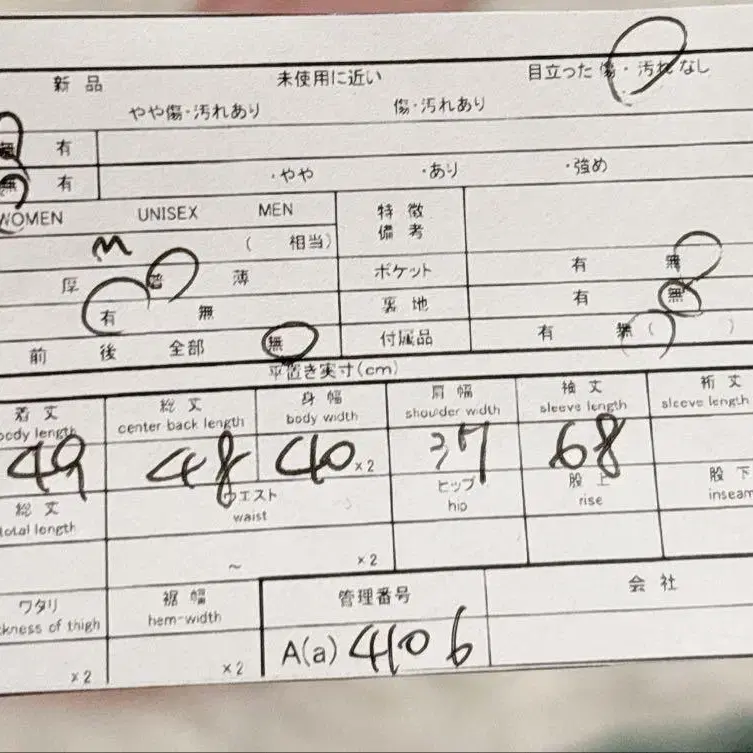 新品 未使用に近い 目立った傷・汚れなし
やや傷・汚れあり 傷・汚れあり
無 有
無 有 ・やや ・あり ・強め
WOMEN UNISEX MEN 特徴
備考
M ( 相当)
厚 普 薄 ポケット 有 無
有 無 裏地 有 無
前 後 全部 無 付属品 有 無 ( )
平置き実寸(cm)
着丈 総丈 身幅 肩幅 袖丈 裄丈
body length center back length body width shoulder width sleeve length sleeve length
49 48 40 ×2 37 68
総丈 ウエスト ヒップ 股上 股下
total length waist hip rise inseam
~ ×2
ワタリ 裾幅 管理番号 会社
ckness of thigh hem-width
×2 ×2 A(a) 406